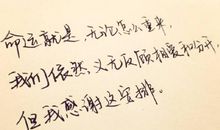 命运就是，无论怎么重来，
我们依然，义无反顾相爱和分开，
但我感谢这安排。